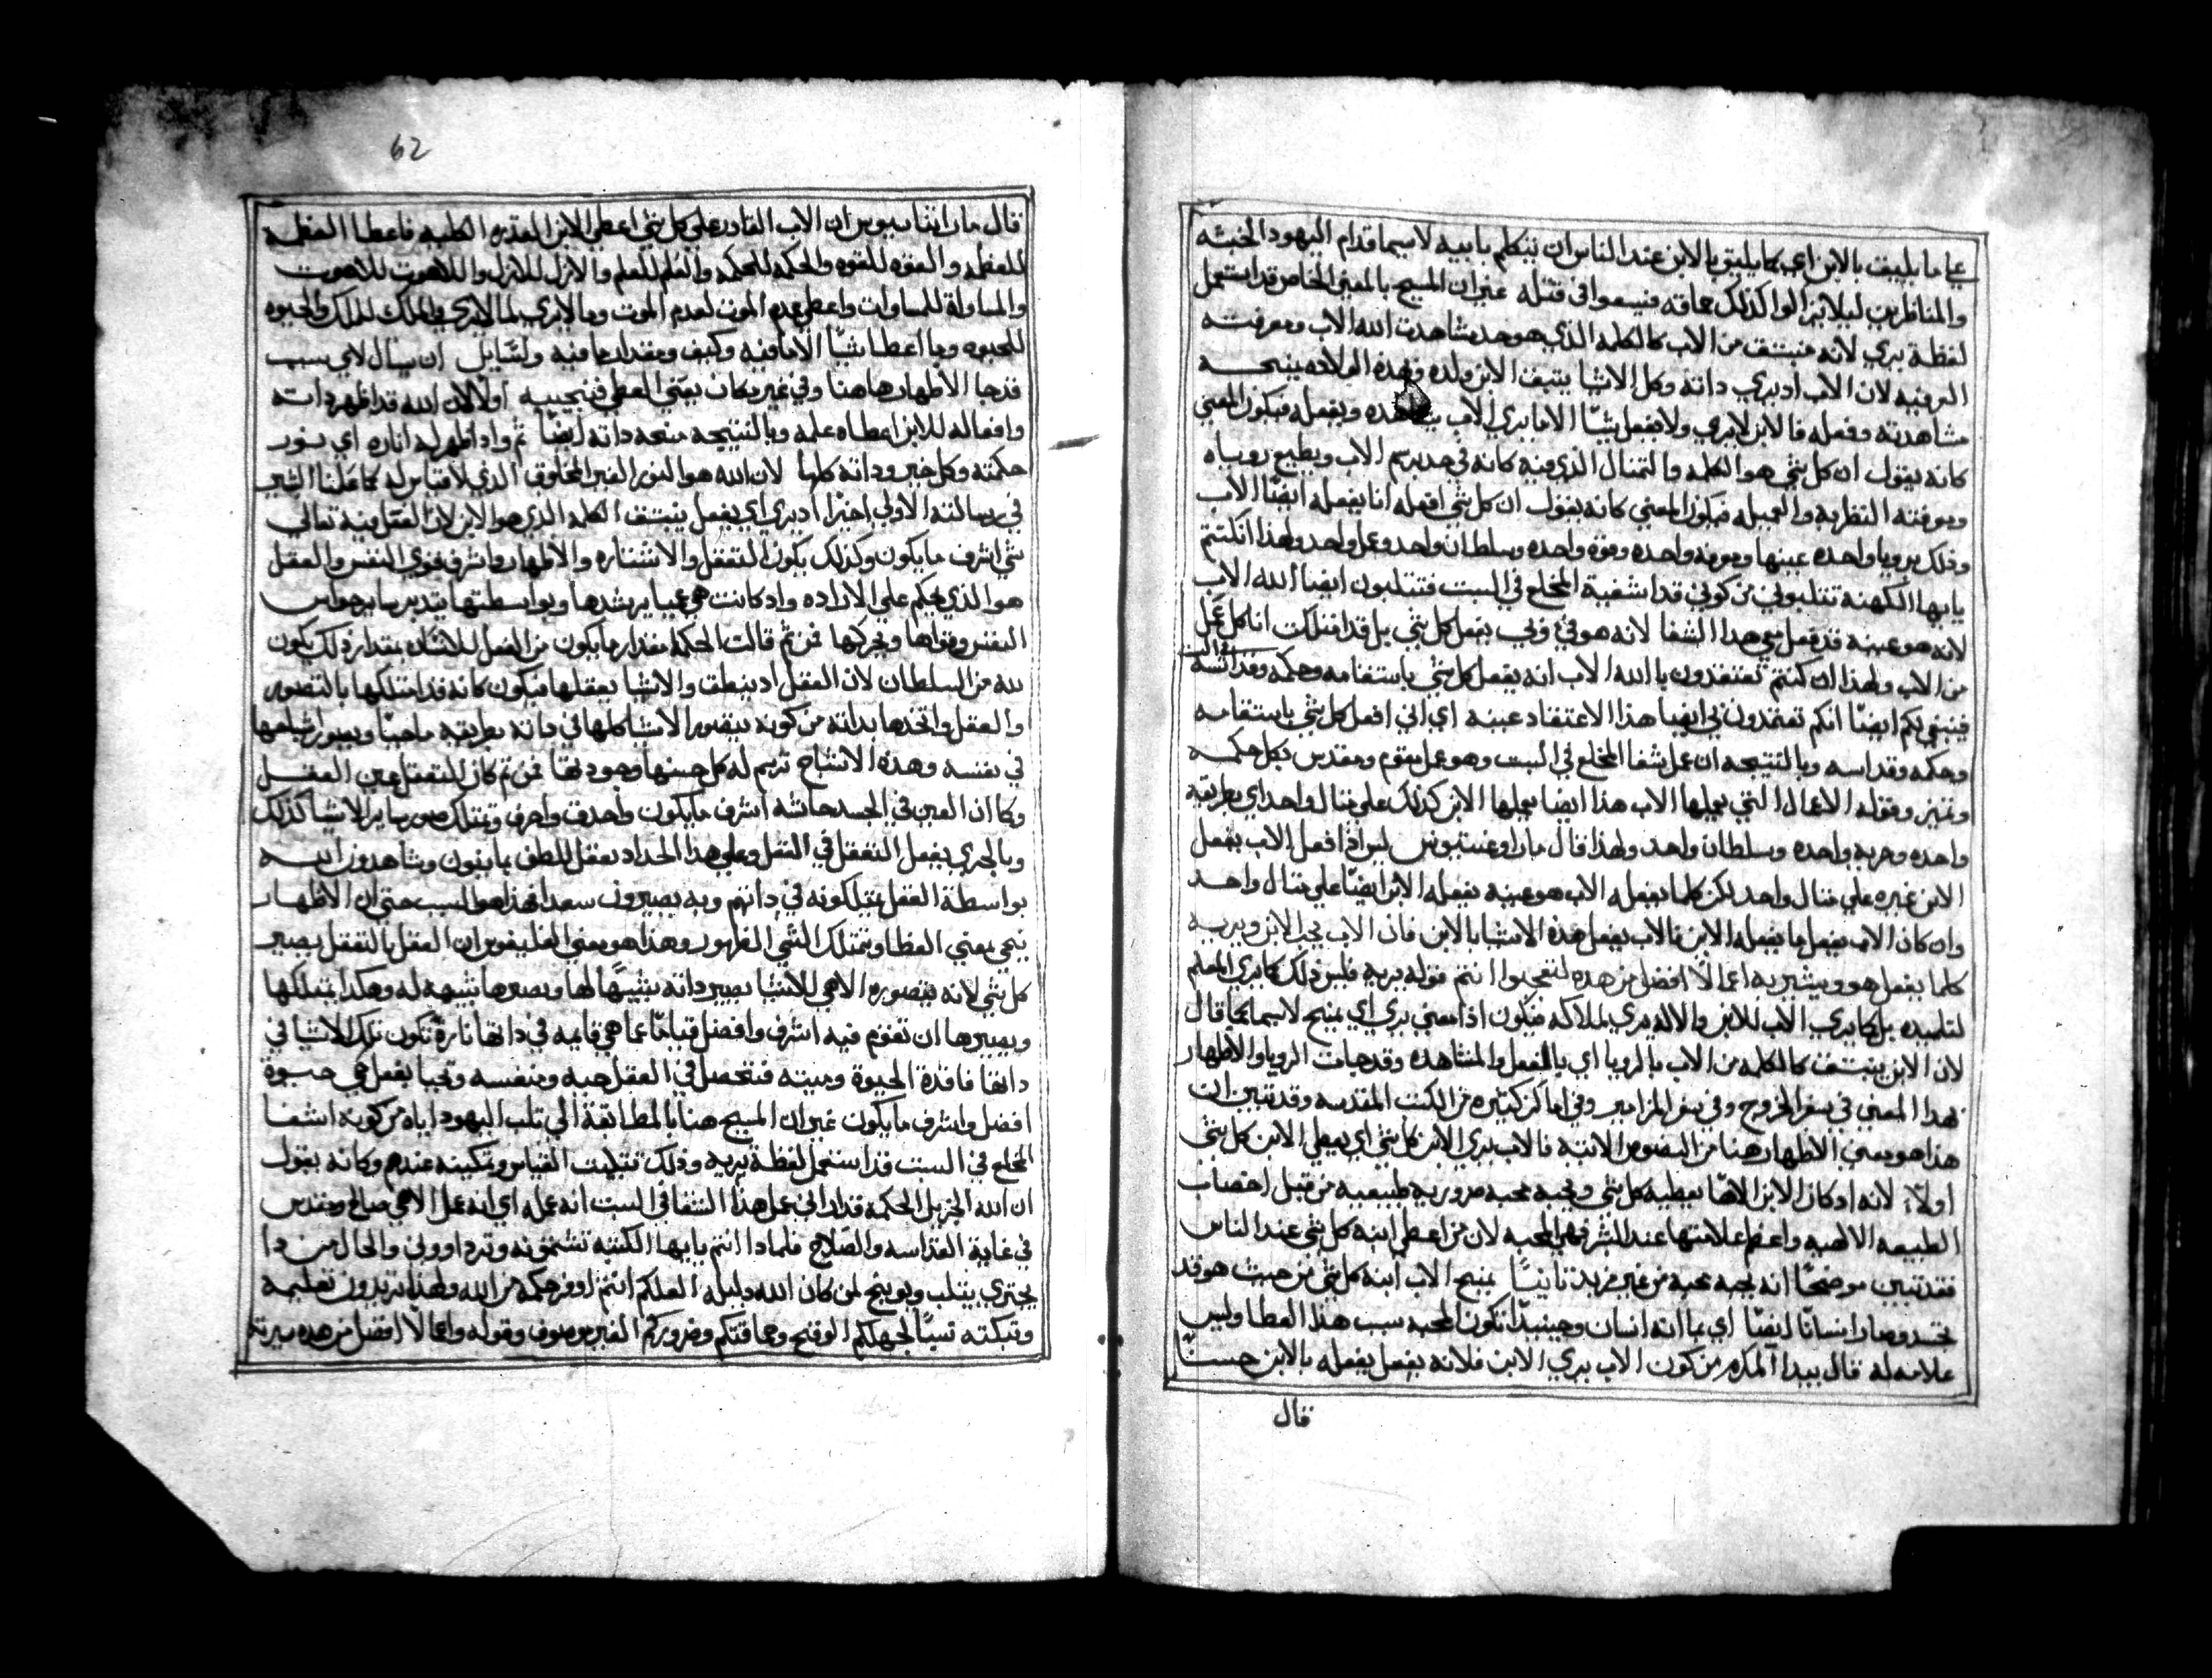 علي ما يليق بالابن اي كما يليق بالابن عند الناس ان يتكلم بابيه لاسيما قدام اليهود الخبثه
والمناظرين ليلا يزالوا كذلك حماقه فيسعوا في قتله غير ان المسيح بالمعني الخاص قد استعمل
لفظة يري لانه منبثق من الاب كالكلمه الذي هو حد مشاهدت الله الاب ومعرفته
العرفيه لان الاب اد يري داته وكل الاشيا يتبق الابن ولده وهذه الولاده يمنحه
مشاهدته وفعله فالابن لا يري ولا يفعل شيًا الا ما يري الاب يشاهده ويفعله فيكون المعني
كانه يقول ان كل شي هو الكلمه والتمتال الذي فيه كانه في حد يرسم الاب ويطبع روياه
ومعرفته النظريه والعمليه فيكون المعني كانه يقول ان كل شي افعله انا يفعله ايضًا الاب
وذلك برويا واحده عينها ومعرفه واحده وقوه واحده وسلطان واحد وعمل واحد ولهذا ان كنتم
يا ايها الكهنه تتلبوني من كوني قد اشفية المخلع في السبت فتتلبون ايضا الله الاب
لانه هو عينه قد فعل بي هدا الشفا لانه هو في وبي يفعل كل شي بل قد امتلكت انا كل عمل
من الاب ولهذا ان كنتم تعتقدون بالله الاب انه يفعل كل شي باستقامه وحكمه وقداسه
فينبغي لكم ايضًا انكم تعتقدون بي ايضا هذا الاعتقاد عينه اي اني افعل كل شي باستقامه
وحكمه وقداسه وبالنتيجه ان عمل شفا المخلع في السبت وهو عمل مقوم ومقدس بكل حكمه
وتميز وقوله الاعمال التي يعملها الاب هذا ايضا يعملها الابن كذلك علي متال واحد اي بطريقه
واحده وحريه واحده وسلطان واحد ولهذا قال مار اوغسطينوس ليس اذا افعل الاب يفعل
الابن غيره علي متال واحد لكن كلما يفعله الاب هو عينه يفعله الابن ايضًا علي متال واحد
وان كان الاب يفعل ما يفعله الابن فالاب يفعل هذه الاشيا بالابن فان الاب يحب الابن ويريه
كلما يفعل هو ويشير به اعمالًا افضل من هده لتتعجبوا انتم قوله يريه فليس ذلك كما يري المعلم
لتلميده بل كما يري الاب للابن والاله يري لملاكه فيكون اذا معني يري اي يمنح لاسيما كما قال
لان الابن ينبثق كالكلمه من الاب بالرويا اي بالفعل والمشاهده وقد جات الرويا والاظهار
بهدا المعني في سفر الخروج وفي سفر المزامير وفي اماكن كتيره من الكتب المقدسه وقد تبين ان
هذا هو معني الاظهار هنا من النصوص الاتيه فالاب يري الابن كل شي اي يعطي الابن كل شي
اولًا لانه اد كان الابن الاهًا يعطيه كل شي ويحبه محبه ضروريه طبيعيه من قبل اخصاب
الطبيعه الالهيه واعظم علامتها عند البشر فهي المحبه لان من اعطي ابنه كل شي عند الناس
فقد تبين موضحًا انه يحبه محبه من غير مزيد تانيًا يمنح الاب ابنه كل شي من حيث هو قد
تجسد وصار انسانًا ايضًا اي بما انه انسان وحينيدًا تكون المحبه سبب هذا العطا وليس
علامه له قال بيدا المكرم من كون الاب يري الابن فلانه يفعل يفعله بالابن حسبًا
قال
62
قال مار اتناسيوس ان الاب القادر علي كل شي اعطي الابن المقدره الكليه فاعطا العظمه
للعظمه والقوه للقوه والحكمه للحكمه والعلم للعلم والازل للازل واللاهوت للاهوت
والمساواة للمساوات واعطي عدم الموت لعدم الموت وما لا يري لما لا يري والملك للملك والحيوه
للحيوه وما اعطا شيًا الا ما فيه وكيف ومقدار ما فيه ولسايل ان يسال لاي سبب
قد جا الاظهار هاهنا وفي غير مكان بمعني العطي فنجيبه اولًا لان الله قد اظهر داته
وافعاله للابن اعطاه علمه وبالنتيجه منحه داته ايضًا تم واد اظهر له اناره اي بنور
حكمته وكل خير وداته كلها لان الله هو النور الغير المخلوق الذي لا قياس له كما علمنا البشير
في رسالته الاولي اخيرًا اد يري اي يفعل ينبثق الكلمه الذي هو الابن لان العقل فيه تعالي
شي اشرف ما يكون وكذلك يكون التعقل والاستناره والاظهار واشرف قوي النفس والعقل
هو الذي يحكم علي الاراده واد كانت هي عميا يرشدها وبواسطتها يتدبر ساير حواس
النفس وقواها ويحركها فمن تم قالت الحكمه مقدار ما يكون من الفعل للانسان بمقدار ذلك يكون
له من السلطان لان العقل اد ينطق والاشيا يعقلها فيكون كانه قد امتلكها بالتصور
والعقل واتخدها بداته من كونه يتصور الاشيا كلها في داته بطريقه ما حيًا ويصور رسامها
في نفسه وهذه الانتتاج ترسم له كل حسنها وجودتها فمن تم كان المتعقل عين العقل
وكما ان العين في الجسد حاسه اشرف ما يكون واحدق واحرف وتمتلك صور ساير الاشيا كذلك
وبالحري يفعل التعقل في العقل وعلي هذا الحداد يعقل اللطف بما يفون ويشاهدون الله
بواسطة العقل يمتلكونه في داتهم وبه يصيرون سعدا فهذا هو السبب حتي ان الاظهار
يجي بمعني العطا ويمتلك الشي المظهور وهذا هو معني الفليفوس ان العقل بالتعقل يصير
كل شي لانه بتصوره الاهي للاشيا يصير داته شبيهًا لها ويصيرها شبيهه له وهكدا يمتلكها
ويصيرها ان تقوم فيه اشرف وافضل قيامًا عما هي قايمه في داتها تارة تكون تلك الاشيا في
داتها فاقدة الحيوة وميته فتحصل في العقل حيه ومنفسه وتحيا بفعل هي حيوة
افضل واشرف ما يكون غير ان المسيح هنا بالمطابقة الي تلب اليهود اياه من كونه اشفا
المخلع في السبت قد استعمل لفظة يريه وذلك تتليت القياس وتمكينه عندهم وكانه يقول
ان الله الجزيل الحكمه قد اراني عمل هذا الشفا في السبت انه عمله اي انه عمل الاهي صالح ومقدس
في غاية القداسه والصلاح فلمادا انتم يا ايها الكتبه تشتموَنه وتردلوني والحال من دا
يجتري يتلب ويوبخ لمن كان الله دليله العلكم انتم اوفر حكمه من الله ولهذا تريدون تعليمه
وتبكته تبيًا لجهلكم الوقح وحماقتكم وغروركم الغير موصوف وقوله واعمالًا افضل من هده سيريه